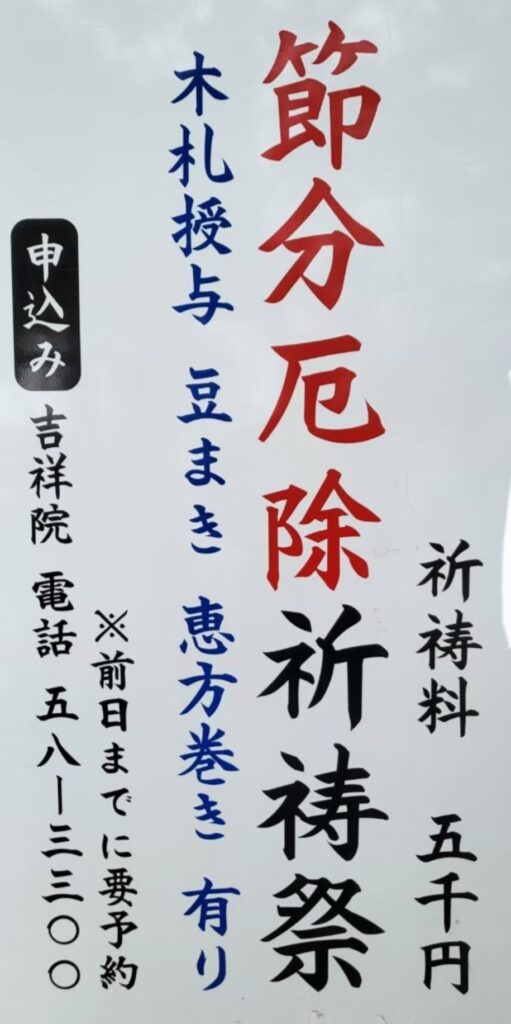 祈祷料 五千円
節分厄除祈祷祭
木札授与 豆まき 恵方巻き 有り
※前日までに要予約
申込み 吉祥院 電話 五八ー三三〇〇